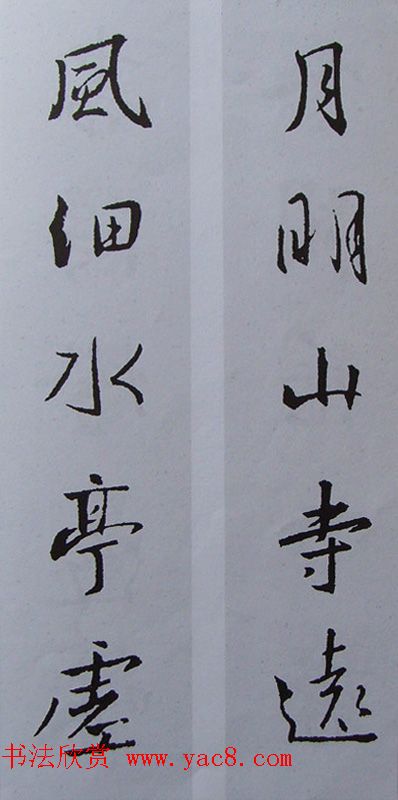 月明山寺遠
風細水亭虛
书法欣赏 www.yac8.com